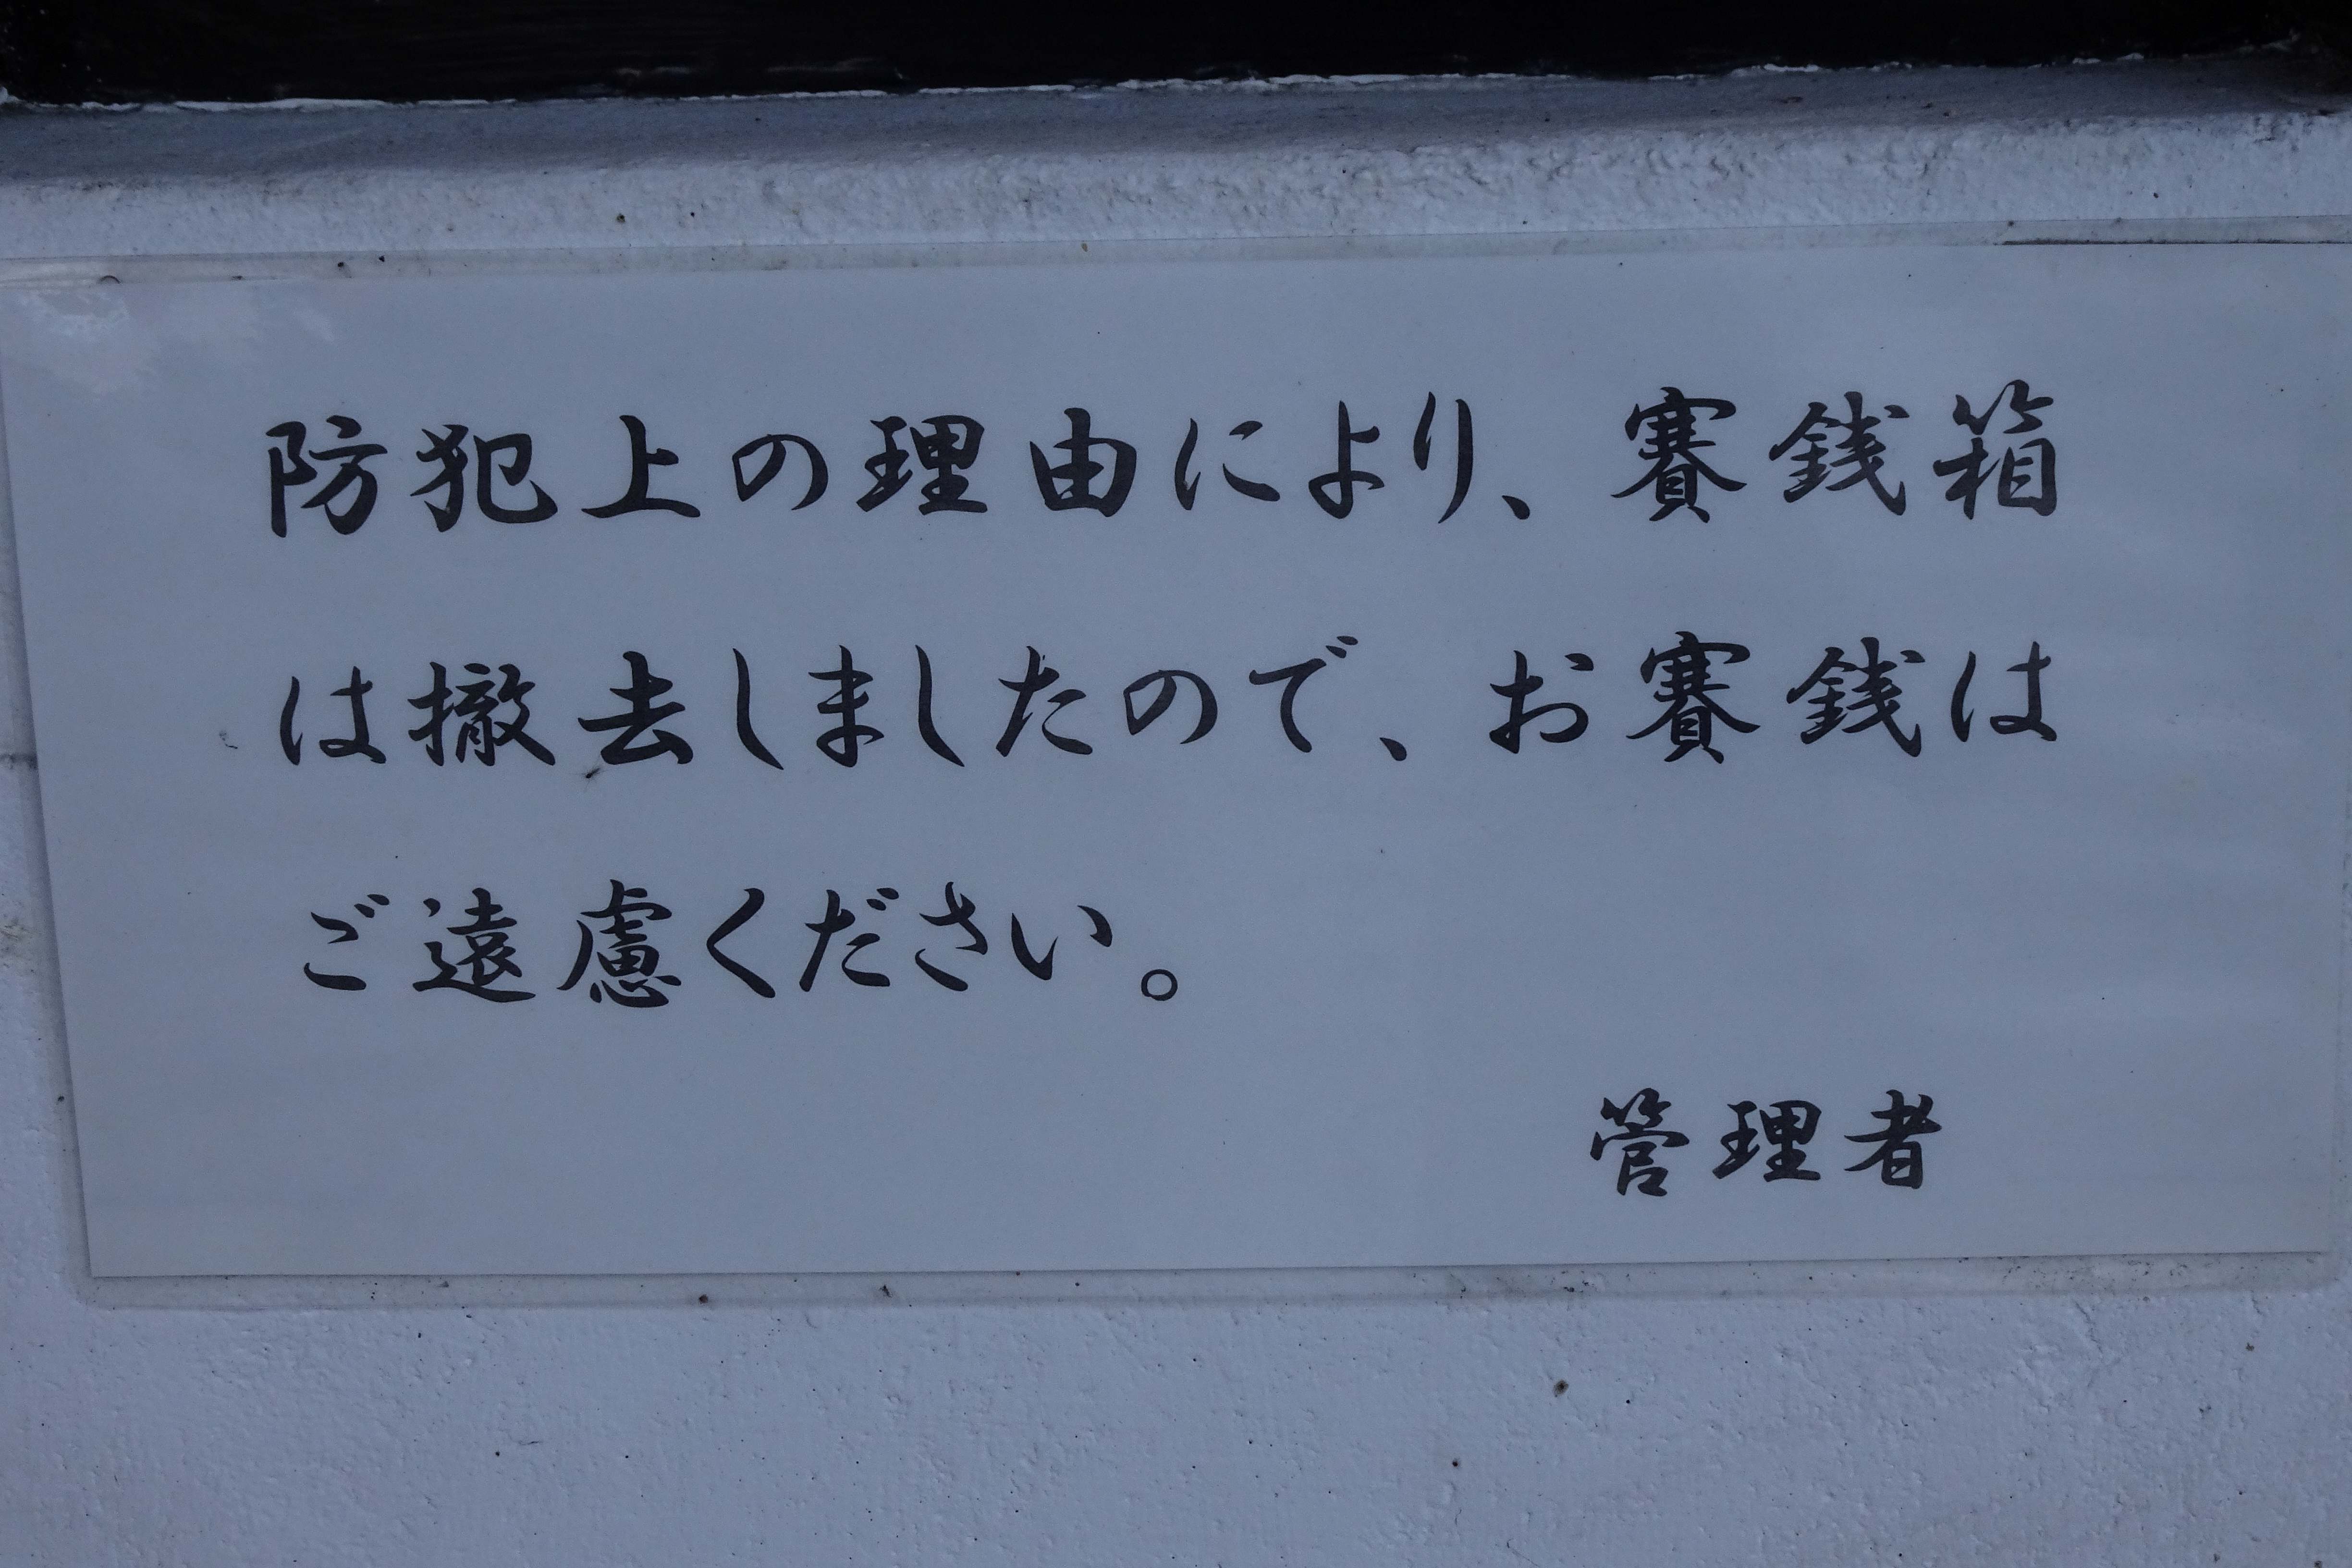 防犯上の理由により、賽銭箱
は撤去しましたので、お賽銭は
ご遠慮ください。
管理者